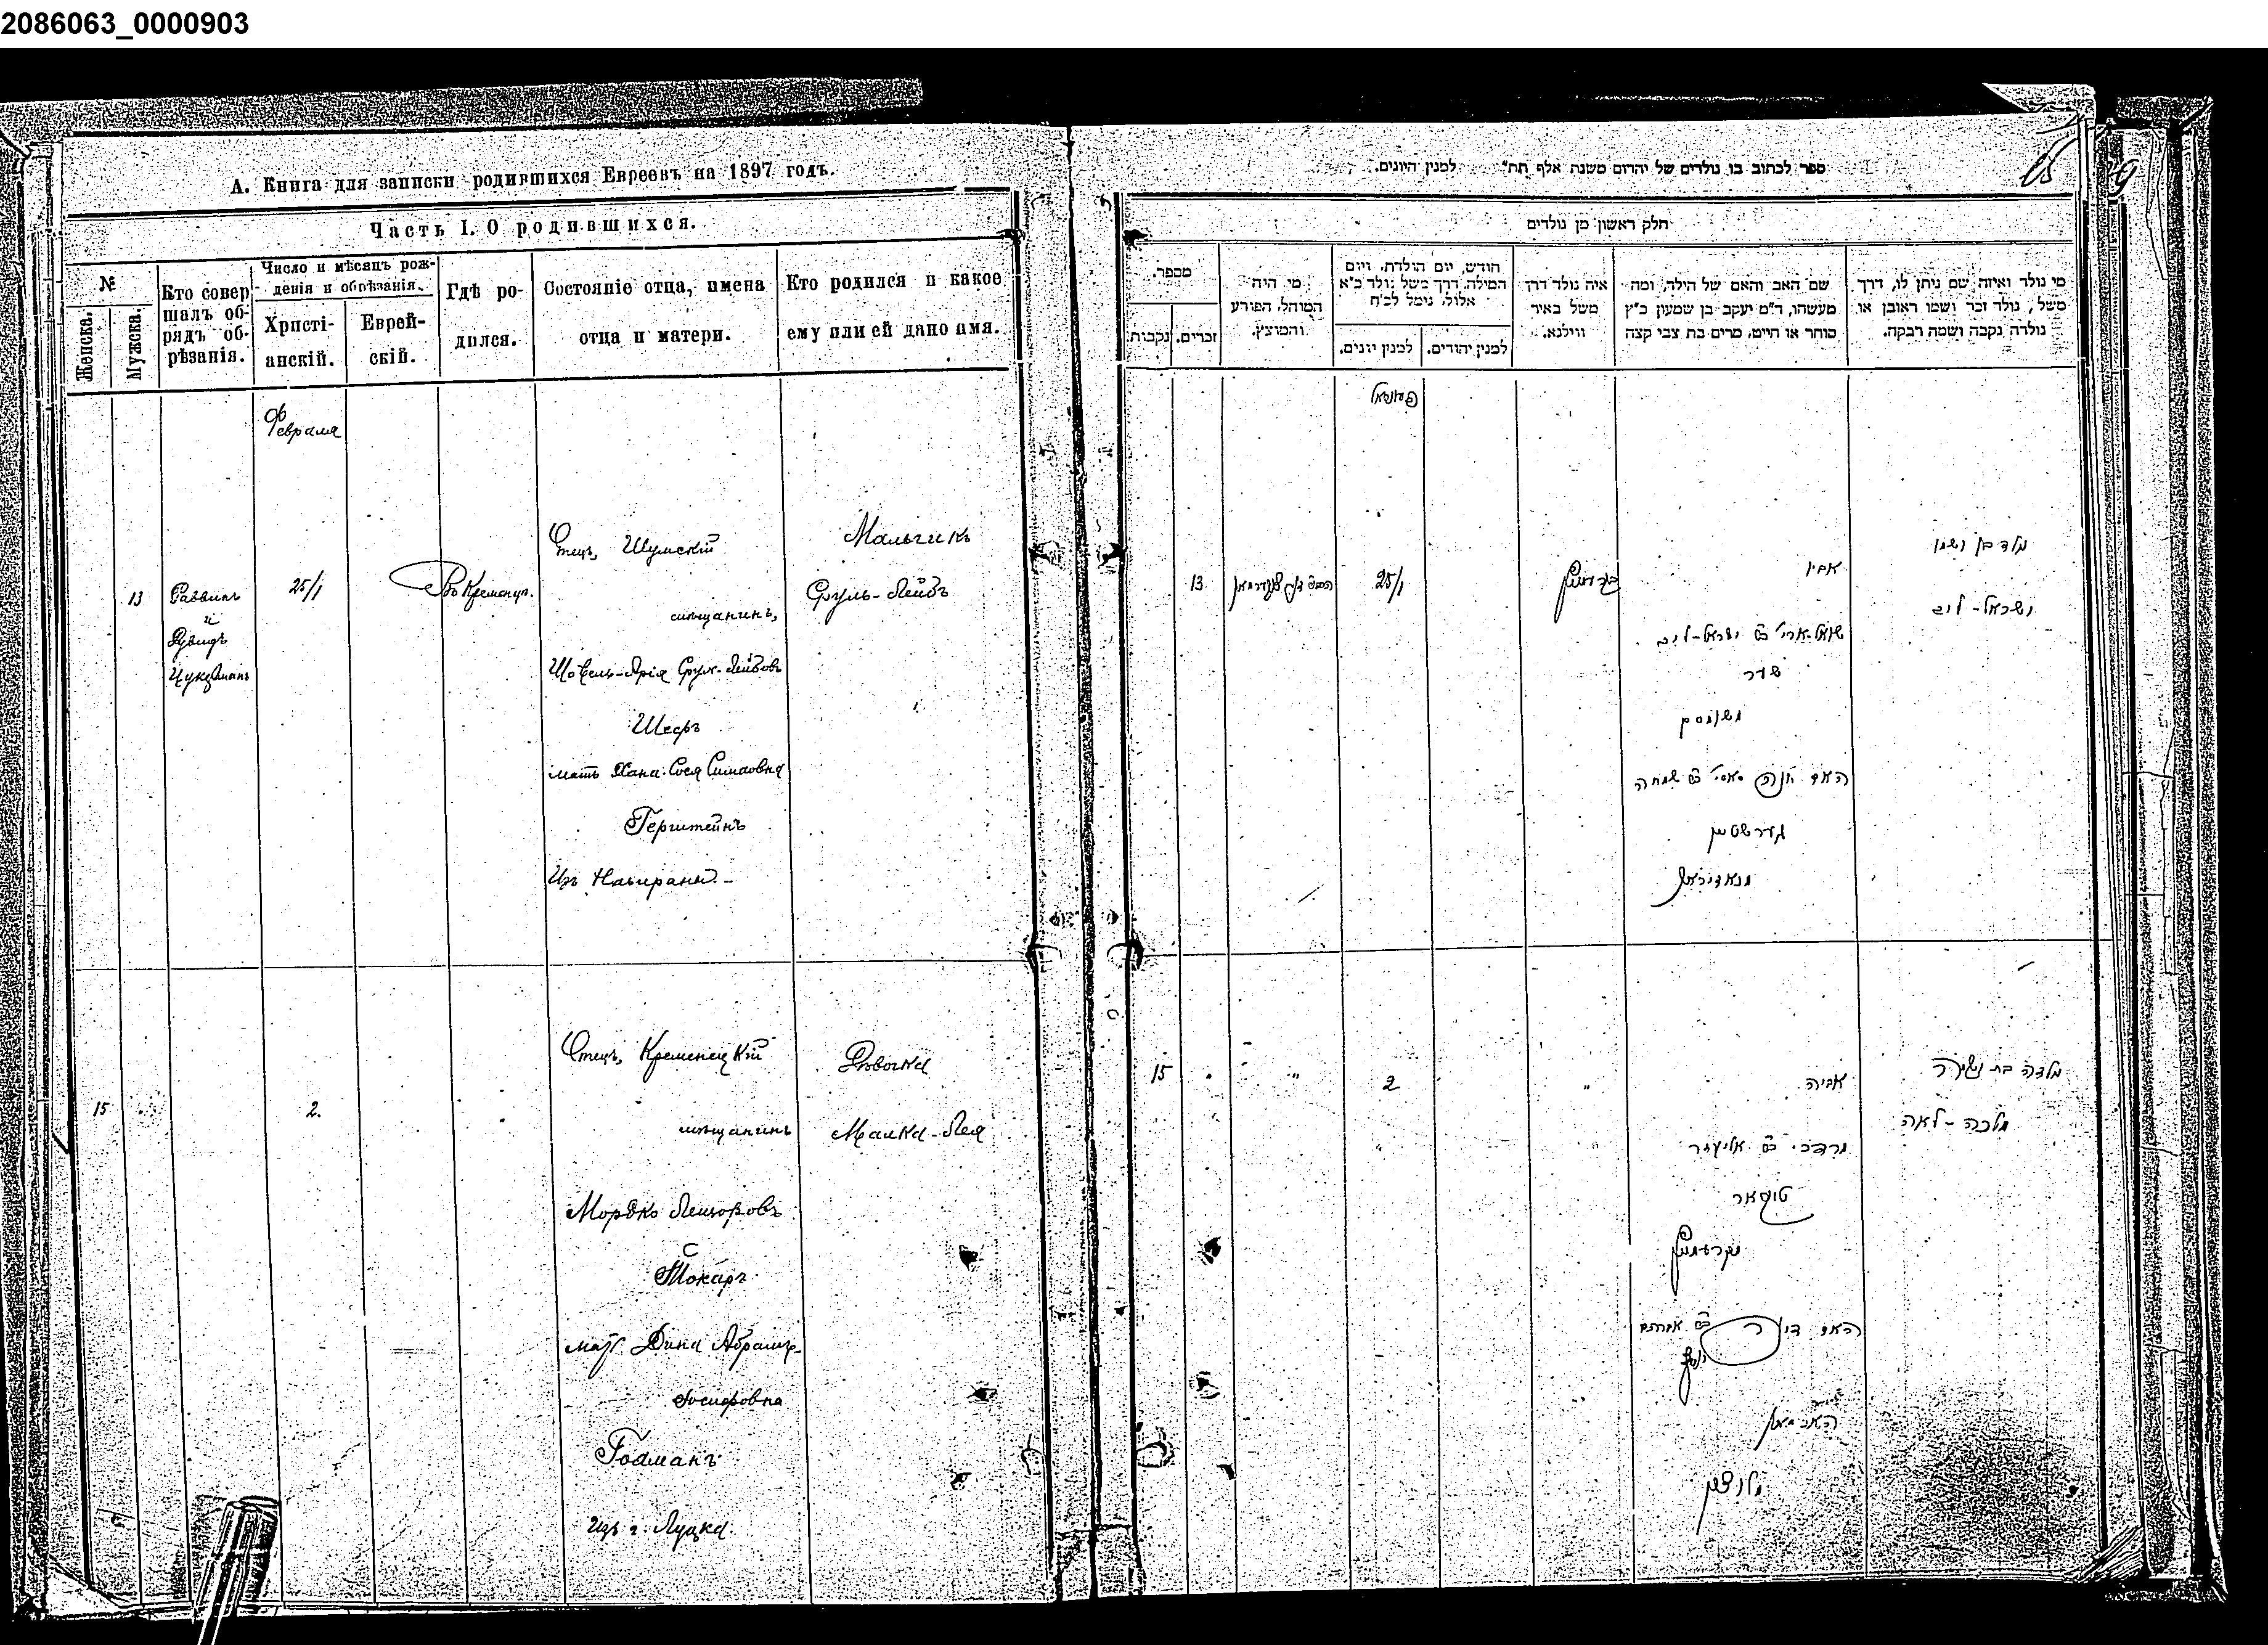 2086063_0000903
А. Книга для записки родившихся Евреевъ на 1897 годъ.
Часть I. О родившихся.
№
Женска.
Мужска.
Кто совер
шалъ об-
рядъ об-
рѣзанія.
Число и мѣсяцъ рож-
денія и обрѣзанія.
Христі-
анскій.
Еврей-
скій.
Гдѣ ро-
дился.
Состояніе отца, имена
отца и матери.
Кто родился и какое
ему или ей дано имя.
Февраля
13
Раввинъ
и
Цукерманъ
25/1
Въ Кременцѣ.
Отецъ, Шумскій
мѣщанинъ,
Шоель-Арія Срул-Лейбовъ
Шеръ
мать Хана-Сося Симховна
Герштейнъ
Мальчикъ
Сруль-Лейбъ
15
2.
Отецъ, Кременецкій
мѣщанинъ
Мордко Лейзоровъ
Токаръ
мать Дина Абрамъ-
Іосифовна
изъ г. Луцка.
Дѣвочка
Малка-Лея
ספר לכתוב בו נולדים של יהדום משנת אלף תת" למנין היונים.
15
חלק ראשון מן נולדים
מספר.
נקבות
זכרים.
מי היה
המוהל, הפורע
והמוצץ.
חודש, יום הולדת, ויום
המילה, דרך משל נולד כ"א
אלול, נימל לכ"ח
למנין יונים.
למנין יהודים.
איה נולד דרך
משל באיר
ווילנא.
שם האב והאם של הילה, ומה
מעשהו, ד"מ יעקב בן שמעון כ"ץ
סוחר או הייט, מרים בת צבי קצה
מי נולד ואיזה שם ניתן לו, דרך
משל, נולד זכר ושמו ראובן או
נולדה נקבה ושמה רבקה.
13
25/1
אביו
שואל-ארי' ב"ם ישראל-ליב
שער
האם חנה סאסי' ב"ם שמחה
גערשטיין
נולד בן ושמו
ישראל-ליב
15
2
אביה
מרדכי ב"ם אליעזר
טוקאר
מקרעמניץ
האם דינה ב"ם אברהם
יוסף
מלוצק
נולדה בת ושמה
מלכה-לאה